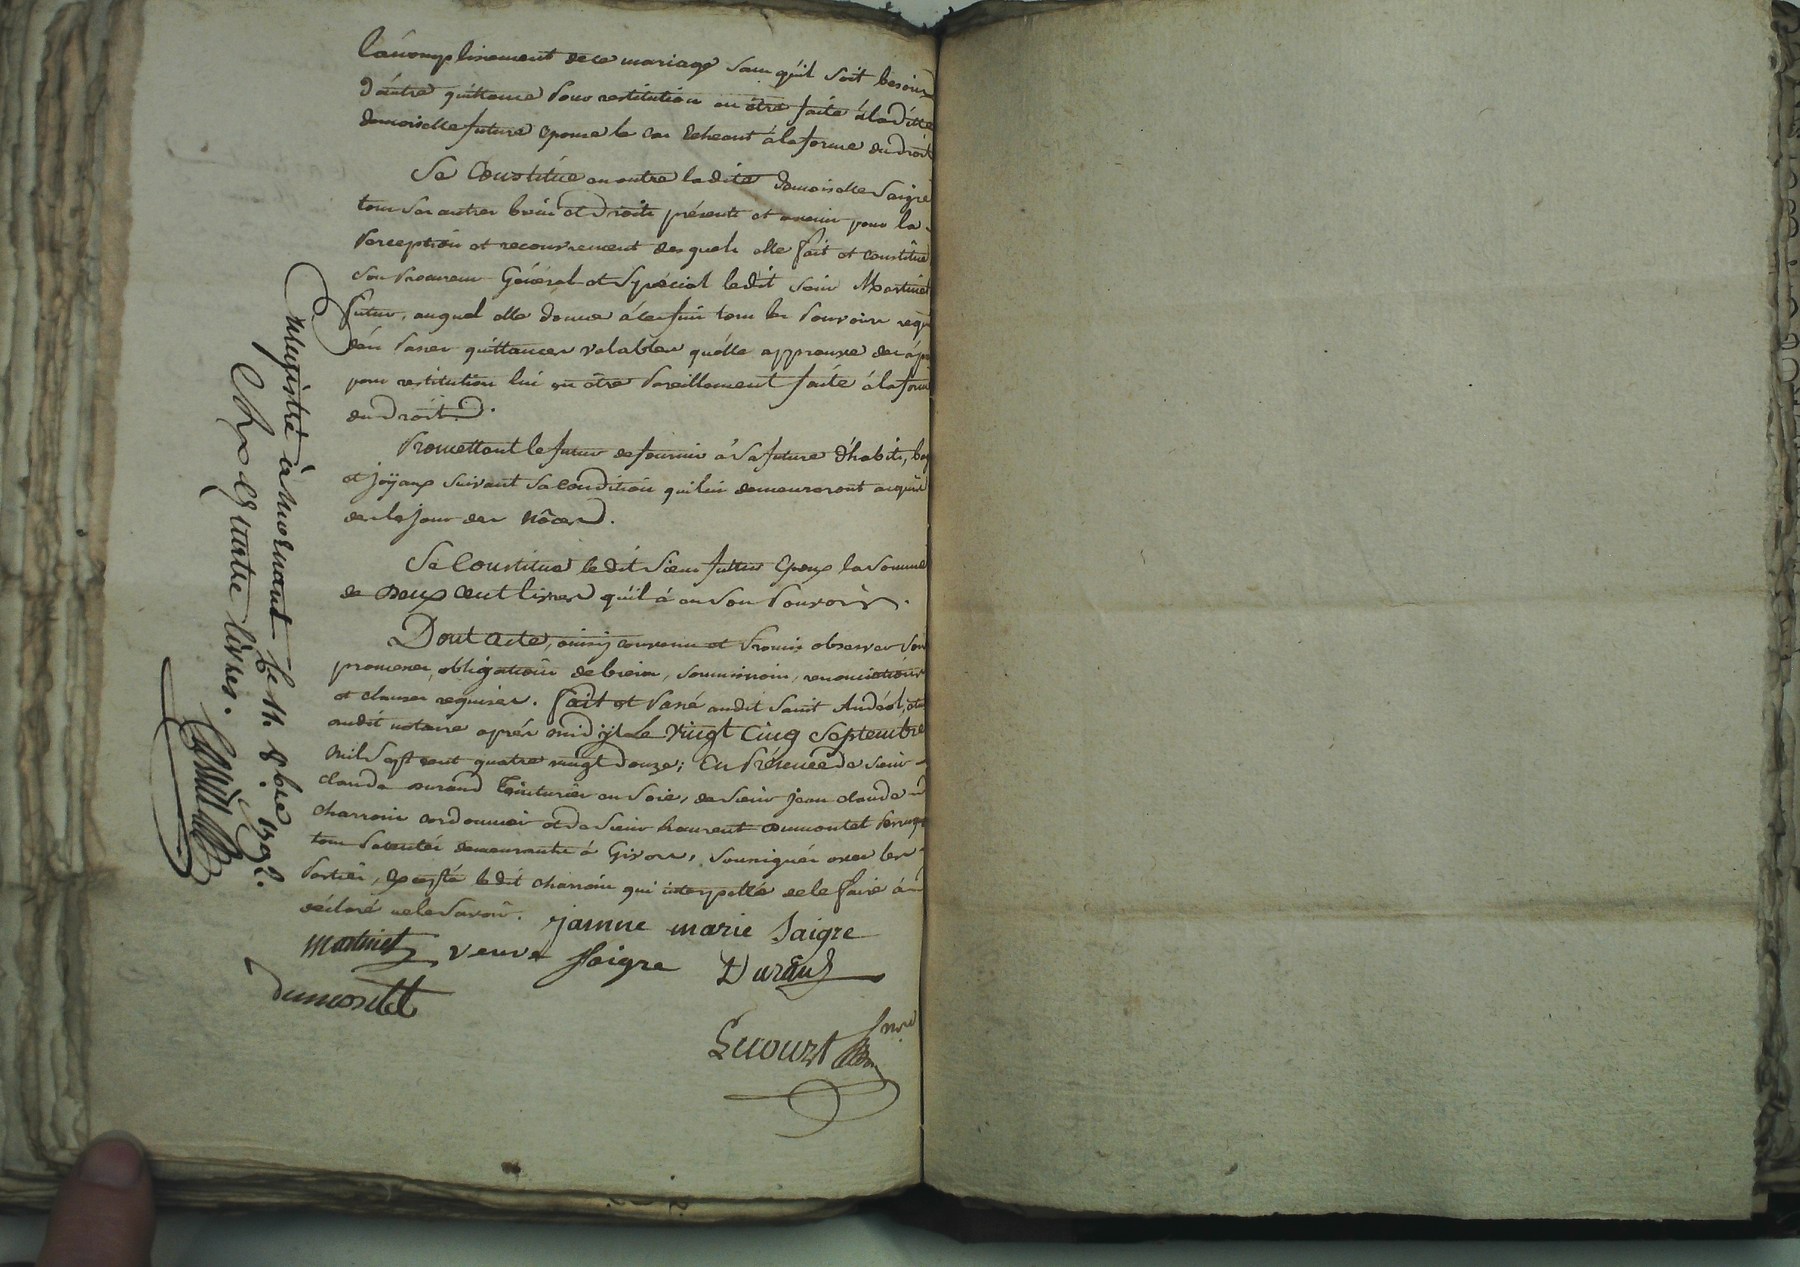 l'accomplissement de ce mariage sans qu'il soit besoin
d'autre quittance pour restitution en être faite à la ditte
demoiselle future epouse le cas echeant à la forme du droit
Se Constitüe en outre la dite demoiselle Saigre
tous ses autres biens et droits présents et avenir pour la
perception et recouvrement desquels elle fait et constitüe
son Procureur Général et Spécial ledit sieur Martinet
futur, auquel elle donne à ces fins tous les pouvoirs requis
d'en passer quittances valables quelle approuve dès à
pour restitution lui en être pareillement faite à la forme
du Droit.
Promettant le futur de fournir à sa future d'habits,
et joÿaux suivant sa condition qui lui demeureront acquis
dès le jour des nôces.
Se Constitue ledit Sieur futur Epoux la somme
de Deux Cent livres qu'il a en son Pouvoir.
Dont acte, ainsi convenu et promis observer sous
promesses, obligations de biens, soumissions, renonciations
et clauses requises. Fait et Passé audit Saint Andéol,
audit notaire après midÿ Le Vingt Cinq Septembre
mil Sept cent quatre vingt Douze; En Présence de Sieur
claude Durand Teinturier en Soie, de Sieur jean claude
charroin cordonnier et de Sieur Laurent Dumontet
tous Patentés demeurants à Givors, Soussignés avec les
Parties, Excepté ledit charroin qui interpellé de le faire à
déclaré ne le Savoir. jamne marie Saigre
Martinet veuve Saigre Durand
dumontet
Lecourt nre
Enregistré à Mornant le 11. 8bre 1792.
quatre livres.